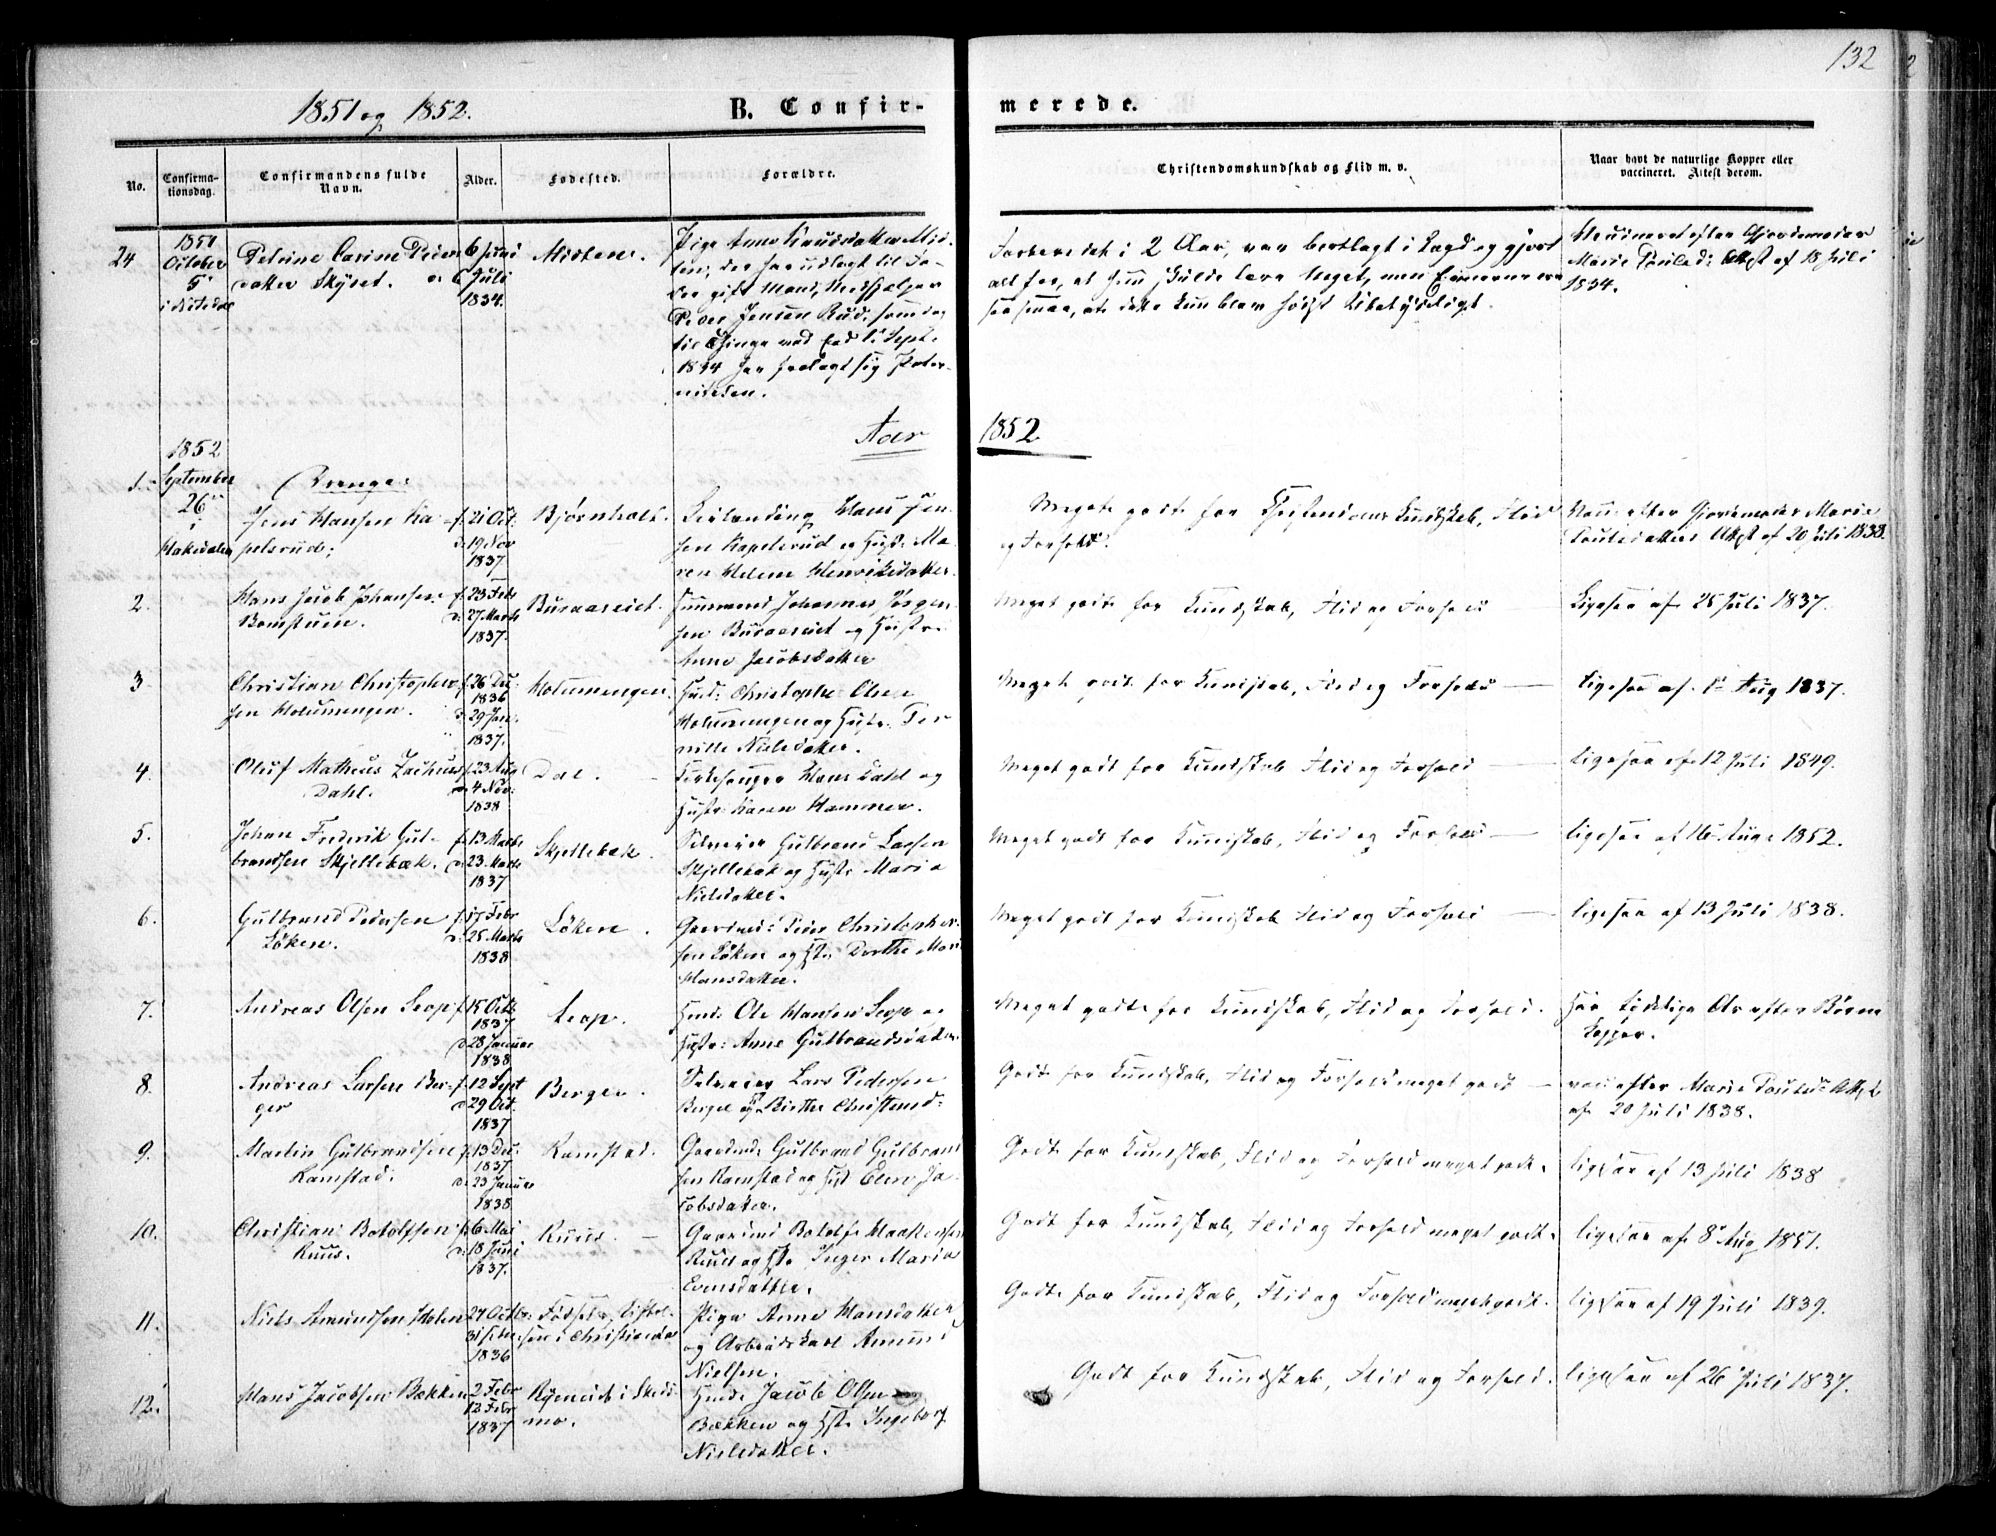 132
1851 og 1852.
B. Confir-
merede.
No.
Confirma-
tionsdag.
Confirmandens fulde
Navn.
Alder.
Fødested.
Forældre.
Christendomskundskab og Flid m. v.
Naar havt de naturlige Kopper eller
vaccineret. Attest derom.
24
1851
October
5
i Nitedal
Petrine Carine Peders
datter Skÿset.
6 Juni
6 Juli
1834.
Pige Anne
den gift Mand,
Peder Jensen Rud, som
til Thinge ved Ed Sept.
1834 har fralagt sig Pater-
niteten.
Forberedet i 2 Aar, var berlagt i og gjort
alt for, at hun skulde lære Noget, men Evnerne ere
saa smaa, at dette kun blev høist Ubetydeligt.
Marie Attest af 18 Juli
1834.
Aar
1852
1852
1.
September
26
i
Hakedalen
Drenge:
Jens Hansen Ka-
pelsrud;
f. 21 Oct.
d. 19 Nov
1837
Bjørnholt.
Hans Jen-
sen Kapelsrud og Hust: Ma-
ren Helene Henriksdatter.
Meget godt for Christendoms Kundskab, Flid
og Forhold.
Vacc. efter Gjordemoder Marie
Poulsdatters Attest af 20 Juli 1838.
2.
Hans Jacob Johansen
Bomstuen.
f. 23 Febr
d. 27 Marts
1837.
Buraaseiet.
Huusmand Johannes Jørgen-
sen Buraaseiet og Hustr.
Anne Jacobsdatter
Meget godt for Kundskab, Flid og Forhold
Ligesaa af 25 Juli 1837.
3
Christian Christopher-
sen Holumengen.
f. 26 Dec.
1836
d. 29 Jan.
1837.
Holumengen.
Husd: Christopher Olsen
Holumengen og Hustr. Per-
nille Nielsdatter.
Meget godt for Kundskab, Flid og Forhold
ligesaa af 1 Aug 1837.
4.
Oluf Matheus Zachius
Dahl.
f. 23 Aug
d. 4 Nov.
1838
Dal.
Kirkesanger Hans Dahl og
Hustr: Karen Hammer.
Meget godt for Kundskab Flid og Forhold
ligesaa af 12 Juli 1849.
5.
Johan Frederik Gul-
brandsen Skjellebæk.
f. 13 Marts
d. 23 Marts
1837
Skjellebæk.
Selveier Gulbrand Larsen
Skjellebæk og Hust: Maria
Nielsdatter.
Meget godt for Kundskab, Flid og Forhold
ligesaa af 16 1852.
6.
Gulbrand Pedersen
Løken.
f. 17 Febr
d. 25 Marts
1838
Løken.
Gaardmd: Peder Christopher-
sen Løken og Hst. Dorthe Marie
Hansdatter.
Meget godt for Kundskab Flid og Forhold
ligesaa af 13 Juli 1838.
7.
Andreas Olsen Leop
f. 15 Octb
1837
d. 28 Januar
1838
Leop.
Husmd: Ole Hansen Leop og
Hustr: Anne Gulbrandsdatter.
Meget godt for Kundskab, Flid og Forhold.
Har tydelige Ar efter Børne
Kopper.
8.
Andreas Larsen Ber-
ger
f. 12 Sept
d. 29 Oct.
1837
Berger.
Selveier Lars Pedersen
Berger og Birthe Christensd:
Godt for Kundskab, Flid og Forhold meget godt
vacc efter Marie Poulsd: Attest
af 20 Juli 1838.
9.
Martin Gulbrandsen
Ramstad.
f. 13 Dec.
1837
d. 23 Januar
1838
Ramstad.
Gaardmd: Gulbrand Gulbrand
sen Ramstad og Hust Elen Ja-
cobsdatter.
Godt for Kundskab, Flid og Forhold meget godt.
ligesaa af 13 Juli 1838
10.
Christian Botolfsen
Ruus.
f. 6 Mai
d. 18 Juni
1837.
Ruus.
Gaardmd Botolf Haakensen
Ruud og Hst. Inger Maria
Evensdatter.
Godt for Kundskab, Flid og Forhold meget godt.
ligesaa af 8 Aug 1851.
11.
Niels Amundsen Holen
27 Octb.
1836
Fødsels Stiftel-
sen i Christiania
Pige Anne Hansdatter
og Arbeidskarl Amund
Nielsen.
Godt for Kundskab, Flid og Forhold meget godt.
ligesaa af 19 Juli 1839.
12.
Hans Jacobsen Bækken
2 Febr
12 Febr
1837
i Skeds-
mo.
Husmd. Jacob Olsen
Bækken og Hst. Ingeborg
Nielsdatter.
Godt for Kundskab, Flid og Forhold.
ligesaa af 26 Juli 1837.